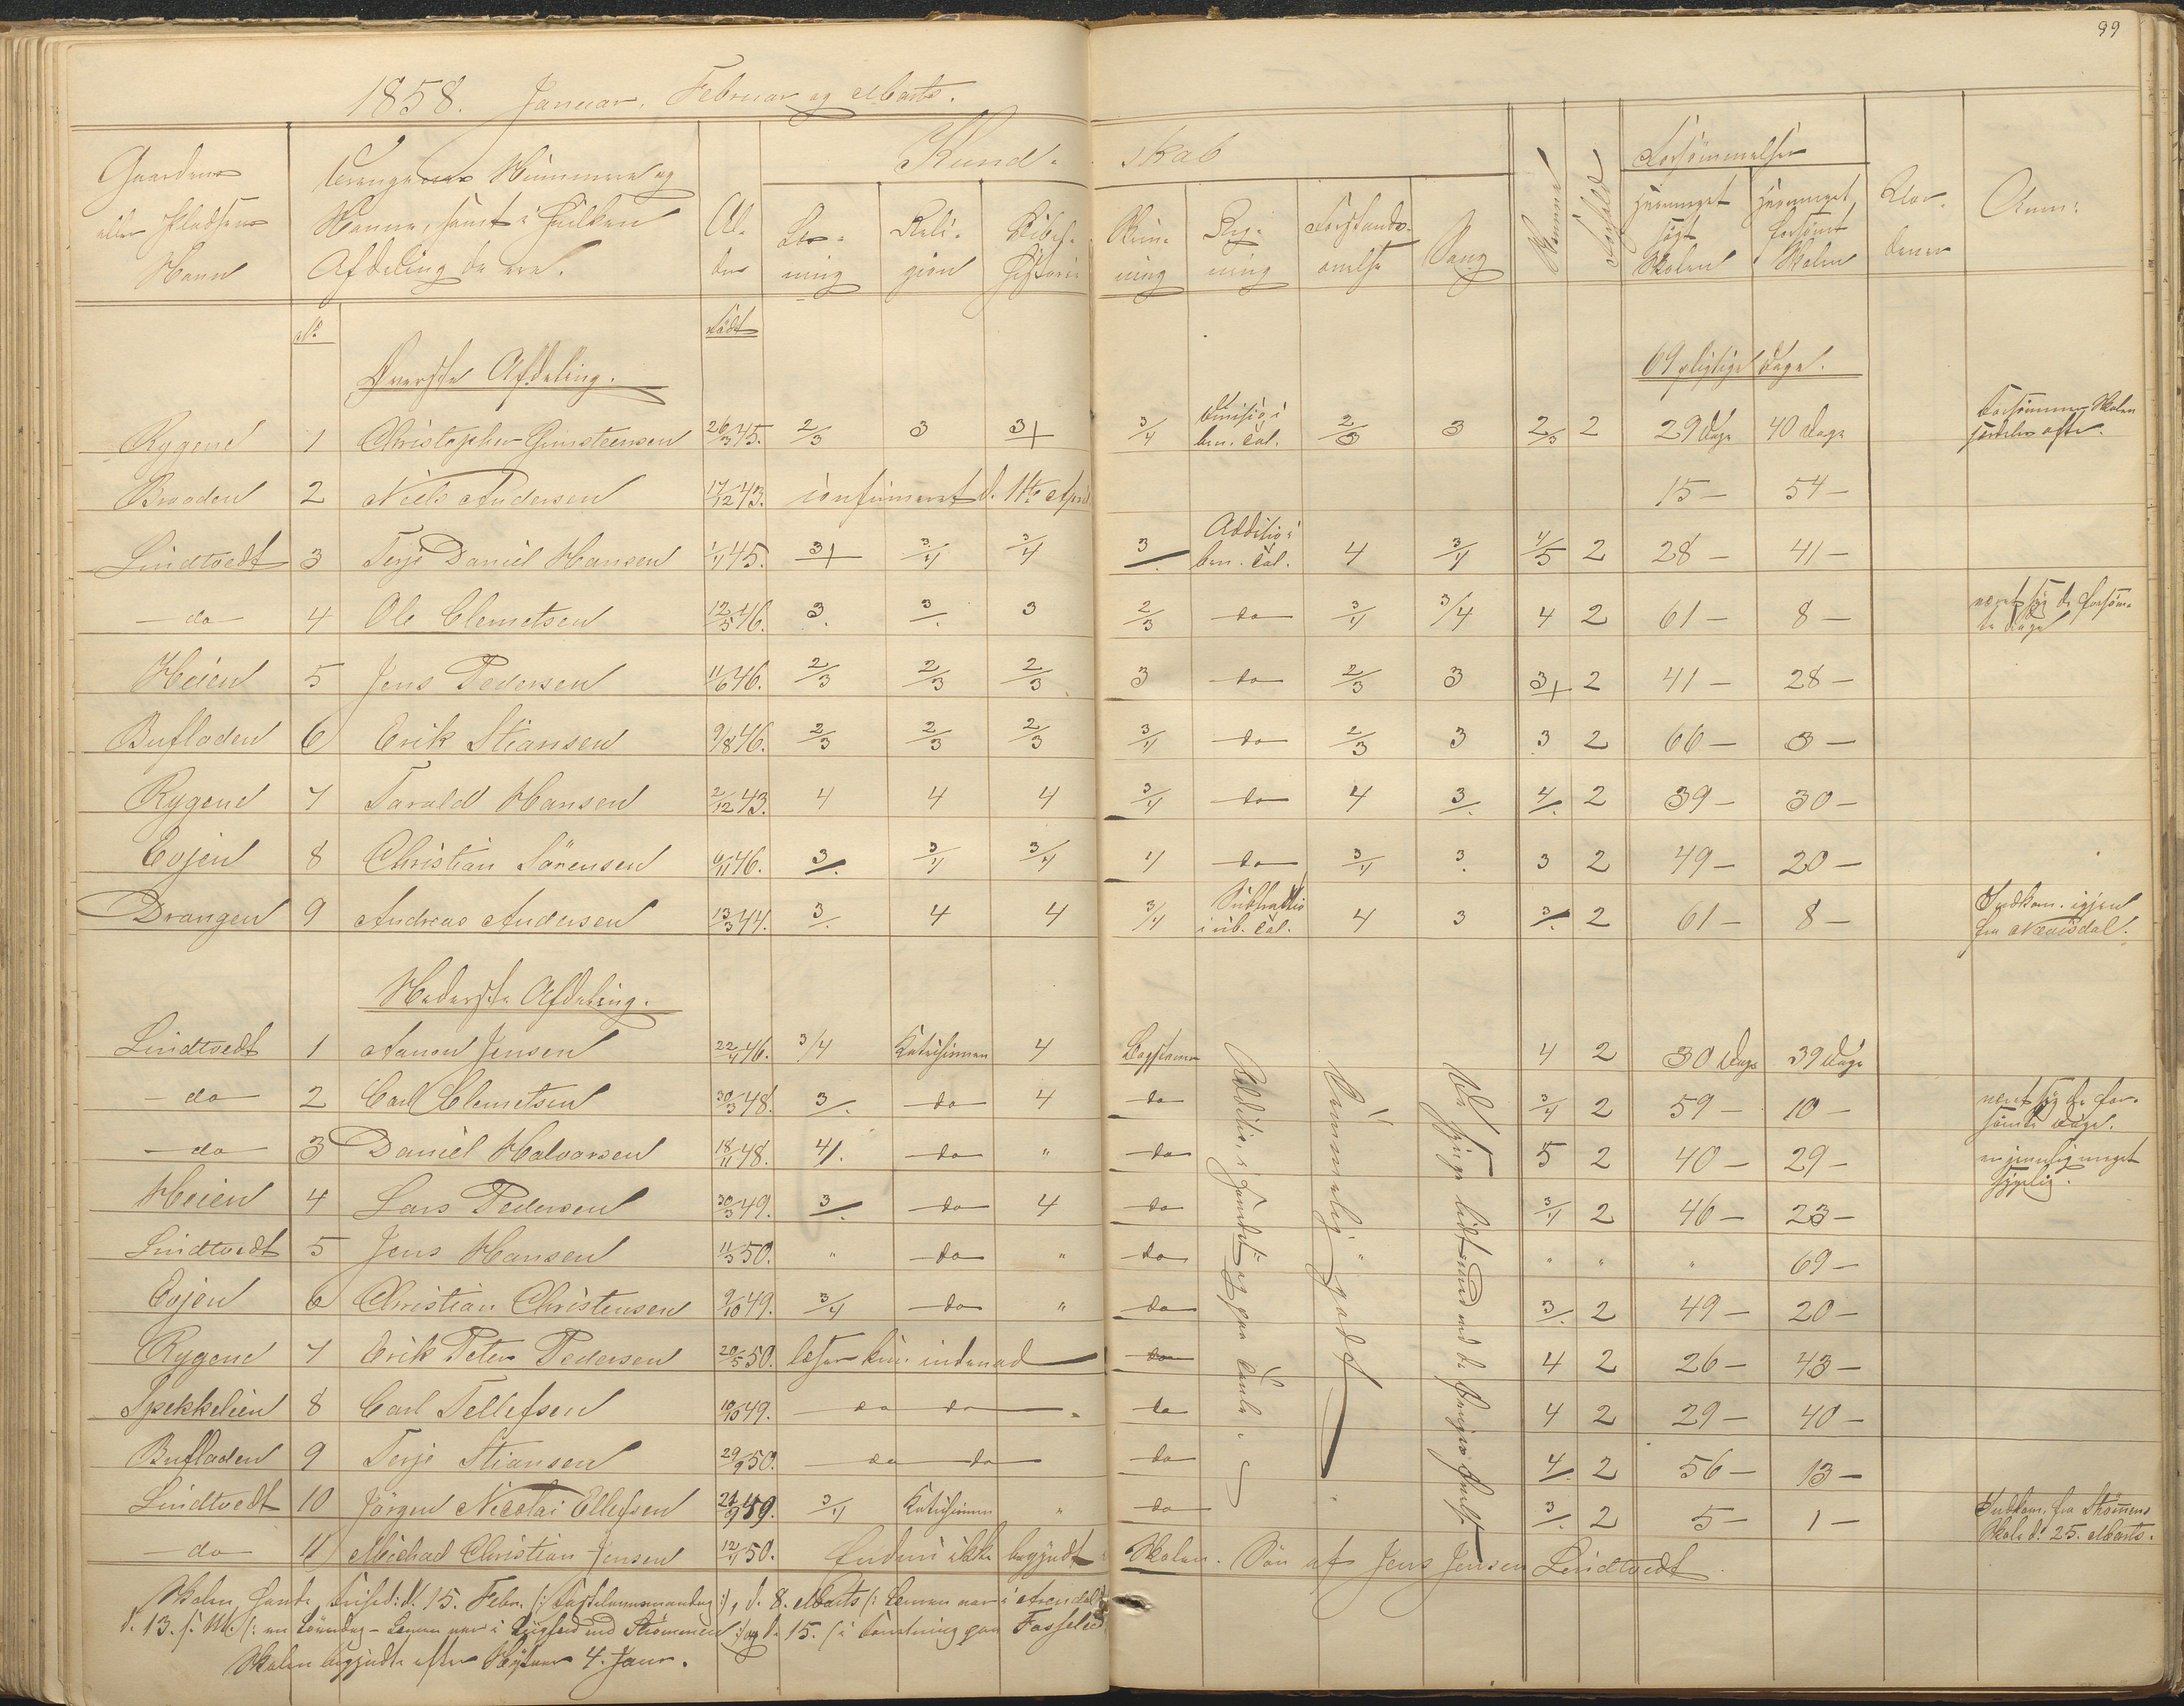 99
1858. Januar, Februar og Marts.
Gaardens eller Pladsens Navn
Drengenes Nummere og Navne, samt i hvilken Afdeling de ere.
Al- der
Kund- skab
Læs- ning
Reli- gion
Bibel- historie
Skriv- ning
Reg- ning
Forstands- øvelse
Sang
Evne
Forhold
Forsømmelser
søgt Skolen
forsømt Skolen
Anm:
No
født
Øverste Afdeling.
69 pligtige Dage.
Rygene 1 Christopher Gunsteensen 26/3 45. 2/3 3 3+ 3/4 Divisio i ben. Tal. 2/3 3 2/3 2 29 Dage 40 Dage Forsømmer Skolen
Brooden 2 Niels Andersen 17/12 43. confirmeret d. 11te April 15 — 54 —
Lindtvedt 3 Terje Daniel Hansen 1/4 45. 3+ 3/4 3/4 3/. Additio i ben. Tal. 4 3/4 4/5 2 28 — 41 —
— do — 4 Ole Clemetsen 12/5 46. 3. 3/. 3 2/3 — do — 3/4 3/4 4 2 61 — 8 — været syg de forsøm- te Dage
Heien 5 Jens Pedersen 11/6 46. 2/3 2/3 2/3 3 — do — 2/3 3 3+ 2 41 — 28 —
Bufladen 6 Erik Stiansen 9/8 46. 2/3 2/3 2/3 3/4 — do — 2/3 3 3 2 66 — 3 —
Rygene 7 Tarald Hansen 2/12 43. 4 4 4 3/4 — do — 4 3/. 4/. 2 39 — 30 —
Evjen 8 Christian Sörensen 6/11 46. 3/. 3/4 3/4 4 — do — 3/4 3. 3 2 49 — 20 —
Drangen 9 Andreas Andersen 13/3 44. 3/. 4 4 3/4 Subtractio i ub. Tal. 4 3 3/. 2 61 — 8 — Indkom. igjen fra Nævisdal.
Nederste Afdeling.
Lindtvedt 1 Aanon Jensen 22/4 46. 3/4 Katechismen 4 Bogstaver 4 2 30 Dage 39 Dage
— do — 2 Carl Clemetsen 30/3 48. 3/. — do — 4 — do — 3/4 2 59 — 10 — været syg de for- sømte Dage.
— do — 3 Daniel Halvorsen 18/11 48. 4/. — do — " — do — 5 2 40 — 29 — meget sygelig.
Heien 4 Lars Pedersen 30/3 49. 3/. — do — 4 — do — 3/4 2 46 — 23 —
Lindtvedt 5 Jens Hansen 11/3 50. " — do — " — do — " " " 69 —
Evjen 6 Christian Christensen 9/10 49. 3/4 — do — " — do — 3/. 2 49 — 20 —
Rygene 7 Erik Peter Pedersen 20/5 50. læser kun indenad — do — 4 2 26 — 43 —
Spekkelien 8 Carl Tellefsen 10/10 49. — do do — — do — 4 2 29 — 40 —
Bufladen 9 Terje Stiansen 29/9 50. — do — do — — do — 4/. 2 56 — 13 —
Lindtvedt 10 Jörgen Nicolai Ellefsen 49. 3/4 Katechismen " — do — 3/. 2 5 — 1 — Indkom. fra Strømmens Skole d. 25. Marts.
— do — 11 Michael Christian Jensen 12/1 50. Endnu ikke begyndt Skolen. Søn af Jens Jensen Lindtvedt
Additio i Hundr. og paa Tavle.
Temmelig godt
De synge lidt med
Skolen havde fri d. 15. Febr. (: Fastelavnsmandag :), d. 8. Marts (: Læreren var i Arendal
d. 13. s. M. (: en Lørdag – Læreren var i ved Strømmen :) og d. 15. ( i Forretning paa Fosselied
Skolen begyndte efter Nytaar 4. Janr.